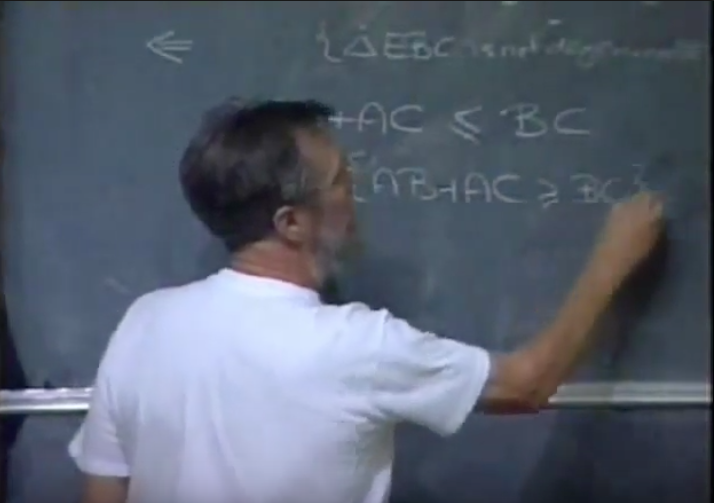 ⇐ { △EBC is not degenerate
+AC ⩽ BC
{AB+AC ⩾ BC}